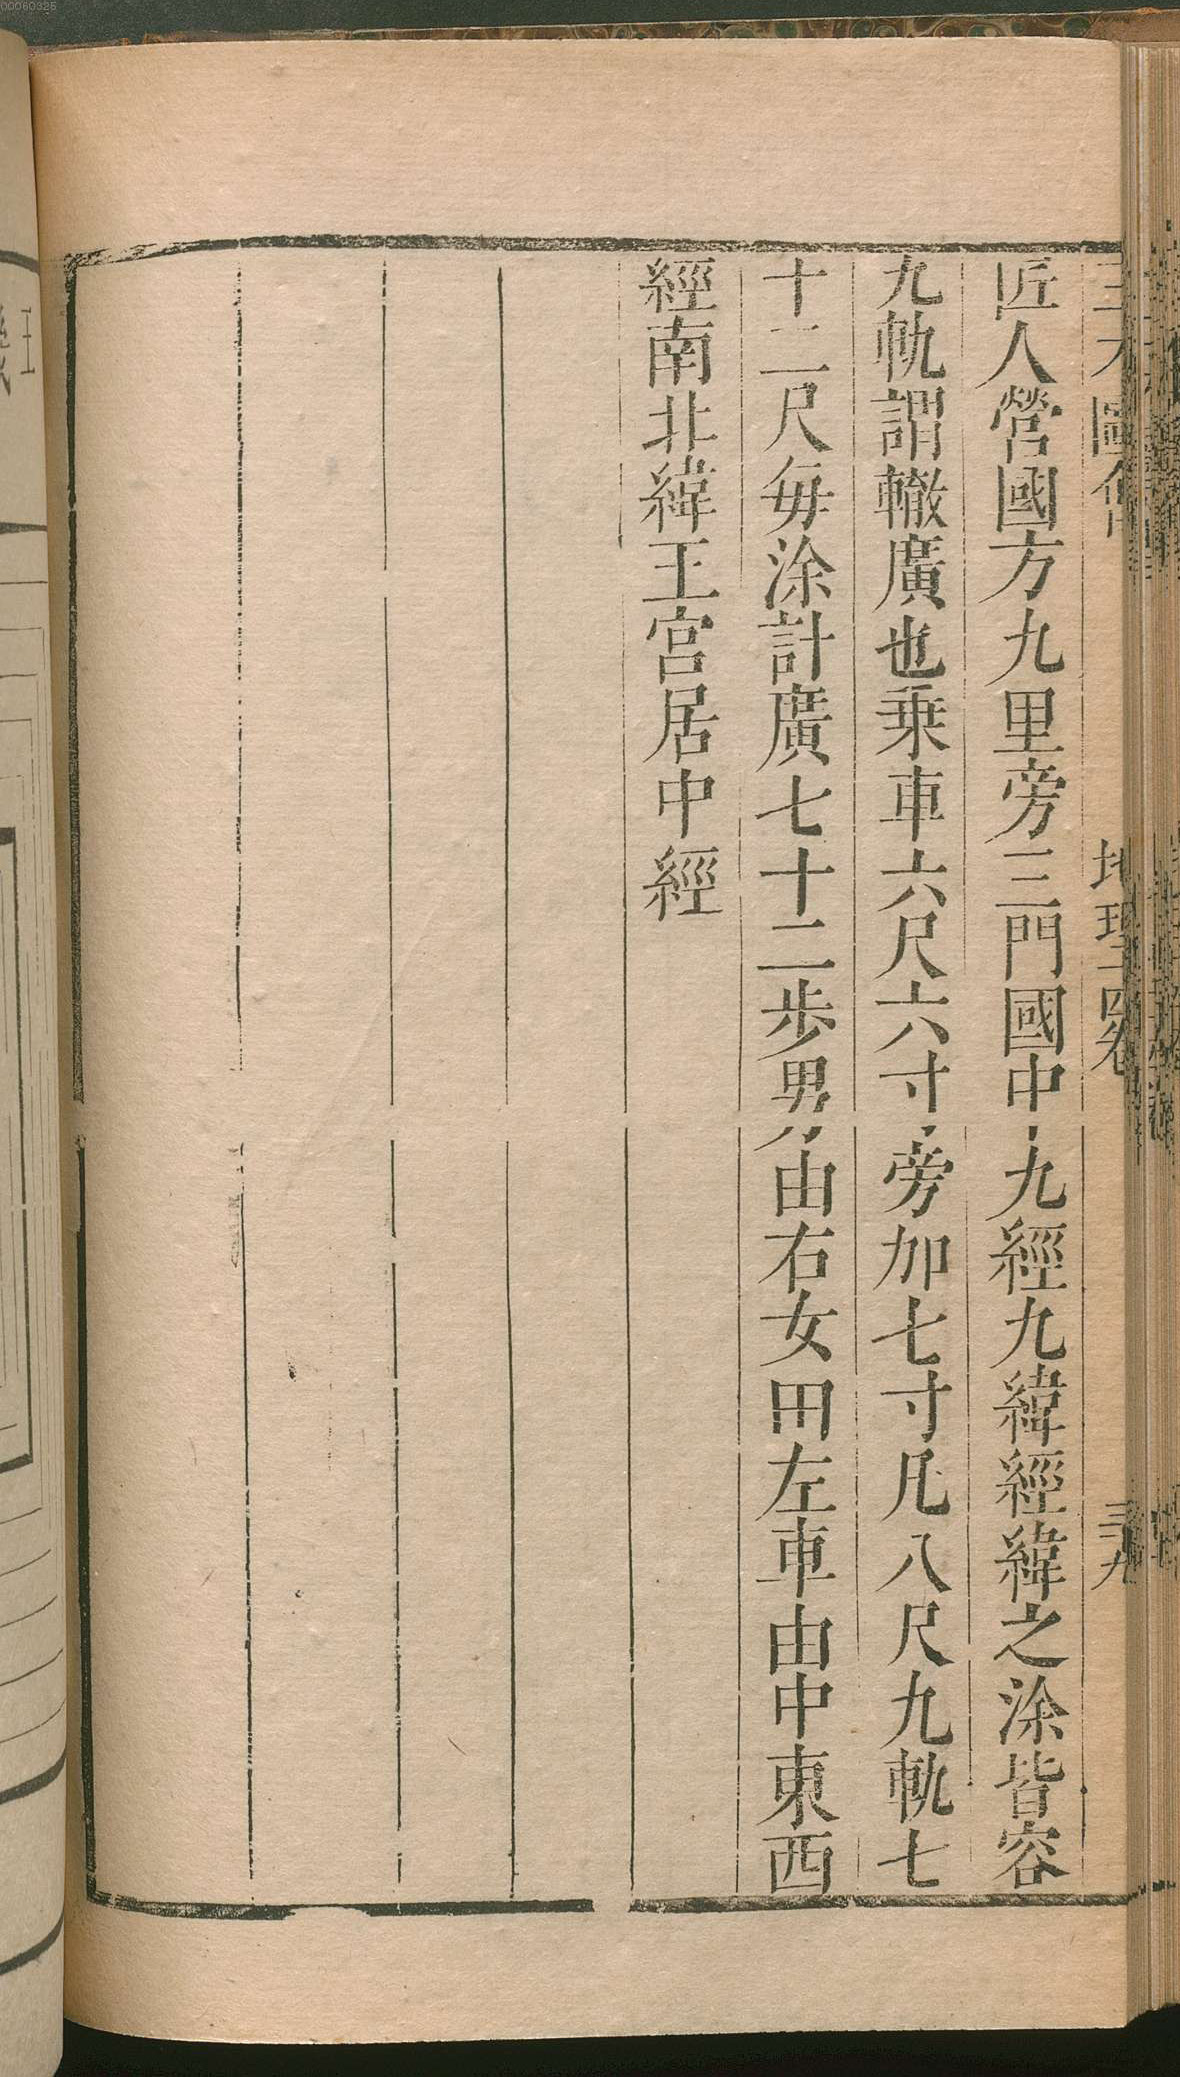 三才圖會 地理四卷 三九
匠人營國方九里旁三門國中九經九緯經緯之涂皆容
九軌謂轍廣也乗車六尺六寸旁加七寸凡八尺九軌七
十二尺毎涂計廣七十二步男由右女由左車由中東西
經南北緯王宮居中經
00060325